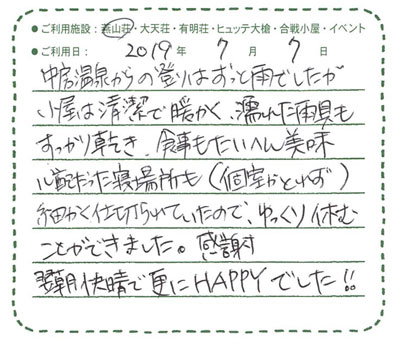 ●ご利用施設：燕山荘・大天荘・有明荘・ヒュッテ大槍・合戦小屋・イベント
●ご利用日： 2019 年 7 月 7 日
中房温泉からの登りはずっと雨でしたが
小屋は清潔で暖かく、濡れた雨具も
すっかり乾き、食事もたいへん美味
心配だった寝場所も（個室がとれず）
細かく仕切られていたので、ゆっくり休む
ことができました。感謝
翌朝快晴で更にHAPPYでした!!